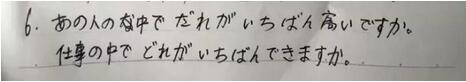 6. あの人の中で だれが いちばん高いですか。
仕事の中で どれが いちばんできますか。